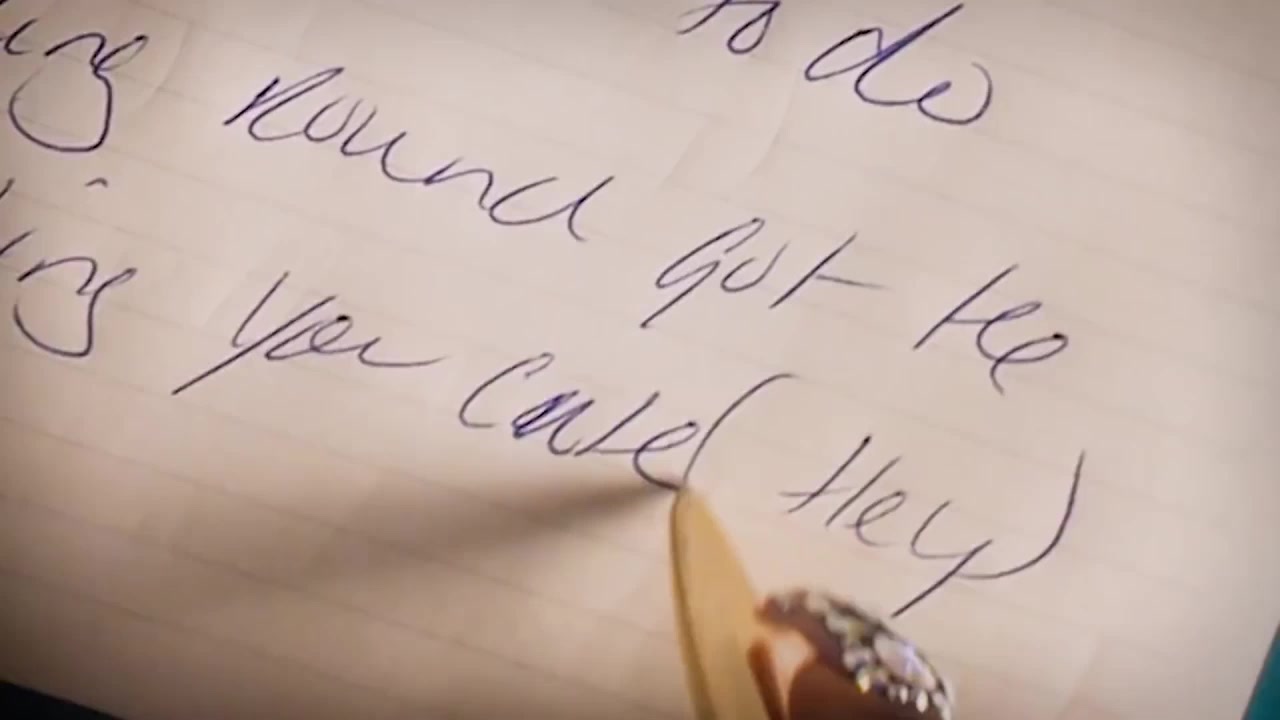 to do
ing Round Got the
ing You Cute( Hey)